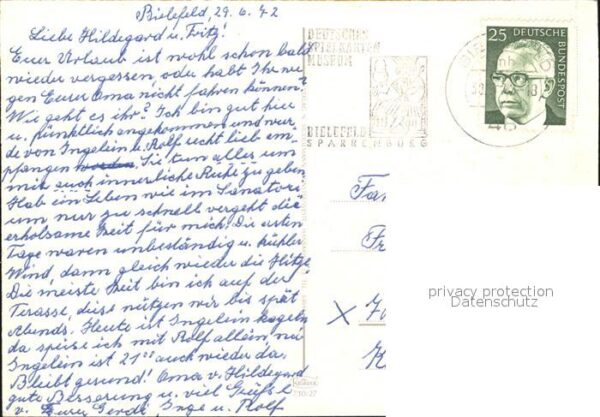 Bielefeld, 29.6.72
Liebe Hildegard u. Fritz!
Euer Urlaub ist wohl schon bald
wieder vergessen, oder habt Ihr we
gen Eurer Oma nicht fahren können?
Wie geht es ihr? Ich bin gut hier
u. pünktlich angekommen und wur
de von Ingelein u. Rolf recht lieb em-
pfangen worden. Sie tun alles um
mir auch innerliche Ruhe zu geben
Hab ein Leben wie im Sanatori
um nur zu schnell vergeht die
erholsame Zeit für mich. Die ersten
Tage waren unbeständig u. kühler
Wind dann gleich wieder die Hitze.
Die meiste Zeit bin ich auf der
Terasse, diese nützen wir bis spät
Abends. Heute ist Ingelein kegeln
da speise ich mit Rolf allein, na
Ingelein ist 21 00 auch wieder da.
Bleibt gesund! Oma v. Hildegard
gute Besserung u. viel Grüße
v. Eurer Gerdi Inge u. Rolf
DEUTSCHES
SPIELKARTEN
MUSEUM
BIELEFELD
SPARRENBURG
25 DEUTSCHE
BUNDESPOST
Fa
Fr
X
K
privacy protection
Datenschutz